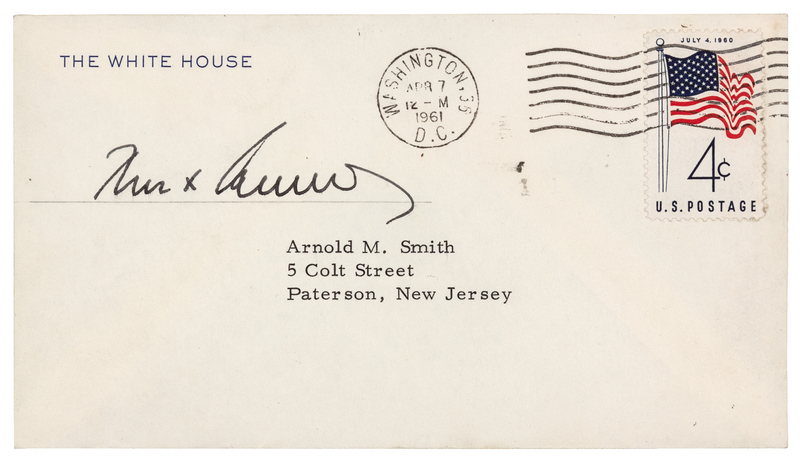 THE WHITE HOUSE
WASHINGTON, 
APR 7
12 - M
1961
D.C.
JULY 4, 1960
4¢
U.S. POSTAGE
Arnold M. Smith
5 Colt Street
Paterson, New Jersey